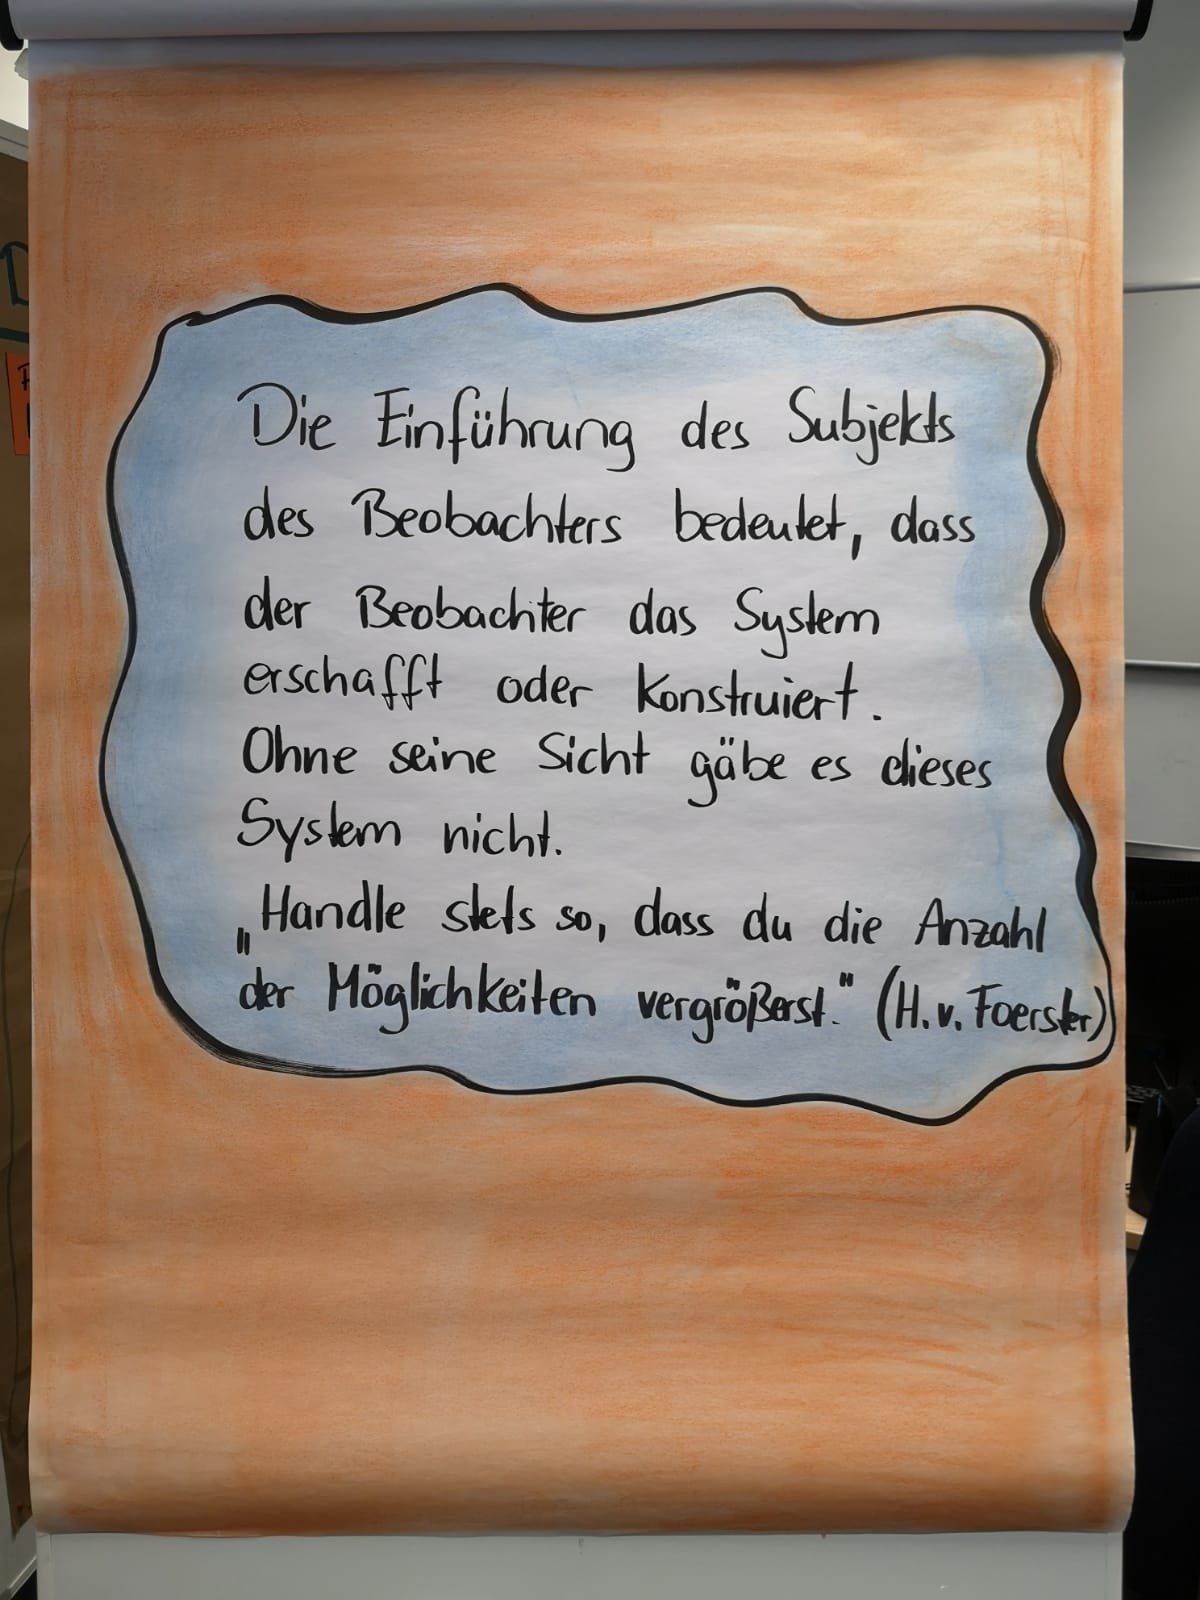 Die Einführung des Subjekts
des Beobachters bedeutet, dass
der Beobachter das System
erschafft oder konstruiert.
Ohne seine Sicht gäbe es dieses
System nicht.
„Handle stets so, dass du die Anzahl
der Möglichkeiten vergrößerst." (H. v. Foerster)